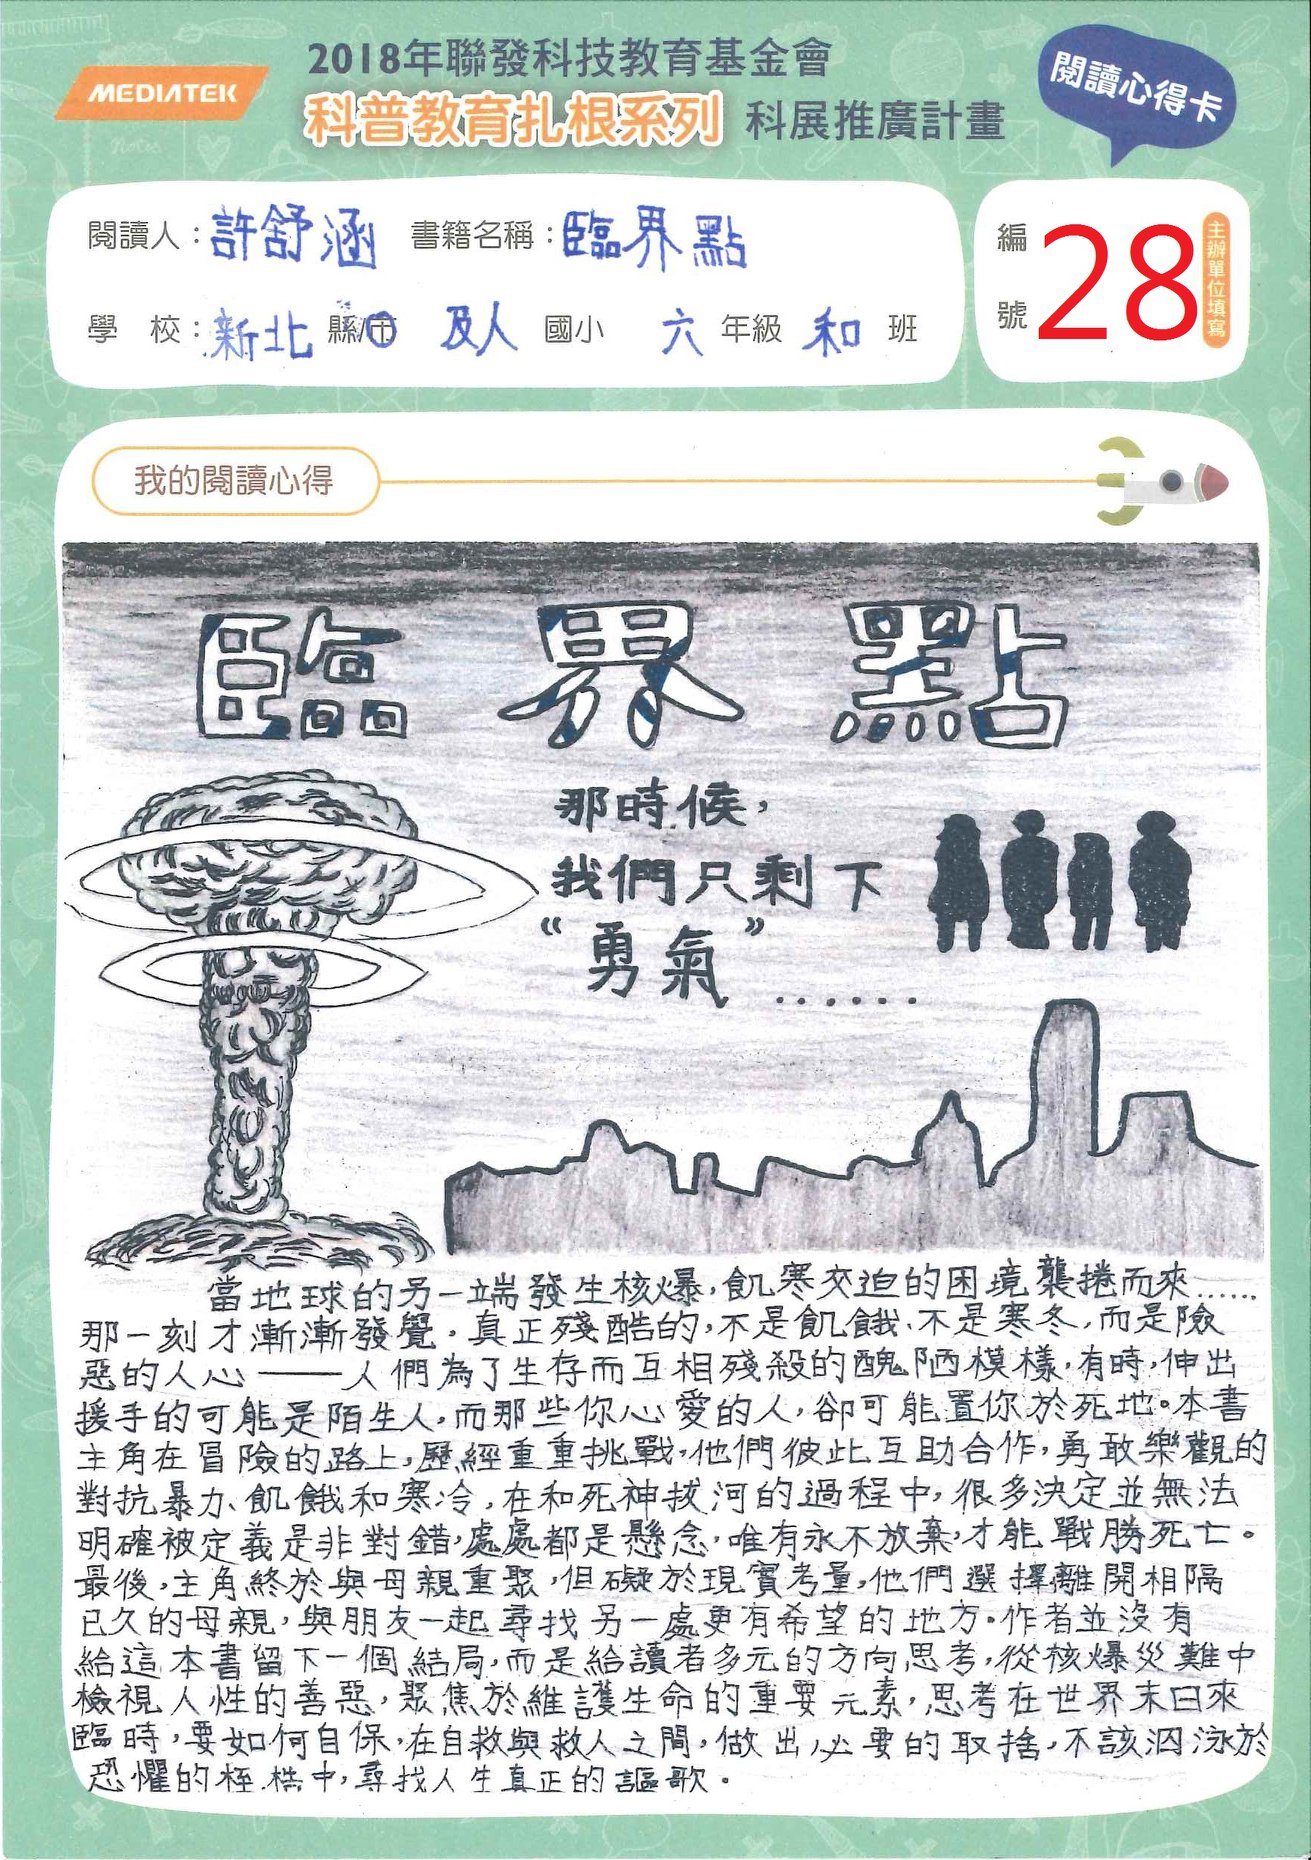 MEDIATEK
2018年聯發科技教育基金會
科普教育扎根系列 科展推廣計畫
閱讀心得卡
閱讀人：許舒涵 書籍名稱：臨界點
學 校：新北 縣/市 及人 國小 六 年級 和 班
編號 28 主辦單位填寫
我的閱讀心得
臨界點
那時候，
我們只剩下
“勇氣”……
當地球的另一端發生核爆，飢寒交迫的困境襲捲而來……
那一刻才漸漸發覺，真正殘酷的，不是飢餓、不是寒冬，而是險
惡的人心——人們為了生存而互相殘殺的醜陋模樣，有時，伸出
援手的可能是陌生人，而那些你心愛的人，卻可能置你於死地。本書
主角在冒險的路上，歷經重重挑戰，他們彼此互助合作，勇敢樂觀的
對抗暴力、飢餓和寒冷，在和死神拔河的過程中，很多決定並無法
明確被定義是非對錯，處處都是懸念，唯有永不放棄，才能戰勝死亡。
最後，主角終於與母親重聚，但礙於現實考量，他們選擇離開相隔
已久的母親，與朋友一起尋找另一處更有希望的地方。作者並沒有
給這本書留下一個結局，而是給讀者多元的方向思考，從核爆災難中
檢視人性的善惡，聚焦於維護生命的重要元素，思考在世界末日來
臨時，要如何自保，在自救與救人之間，做出必要的取捨，不該泅泳於
恐懼的桎梏中，尋找人生真正的謳歌。